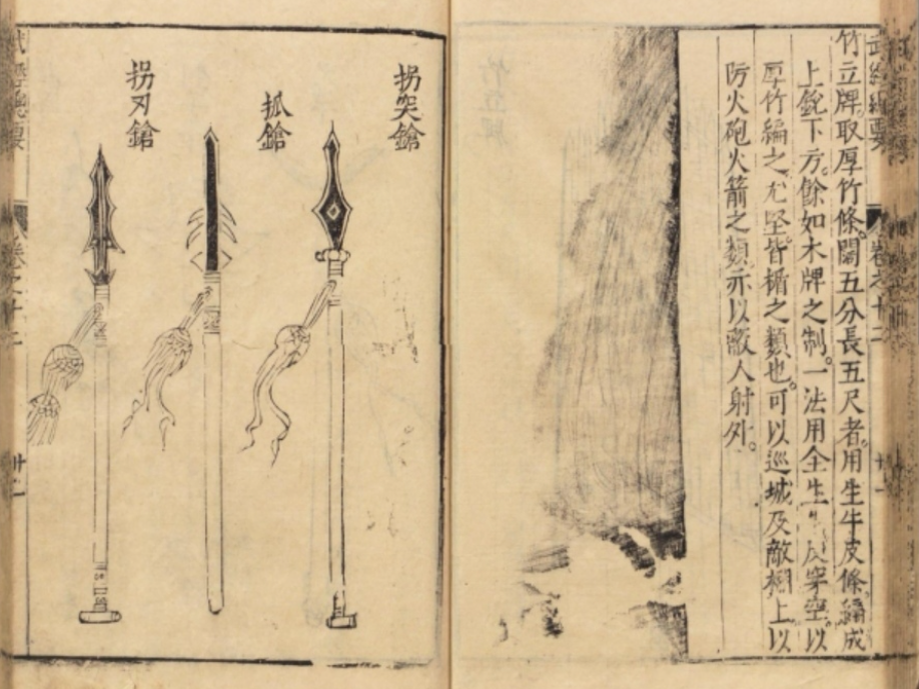 武經總要
卷之十二
竹立牌。取厚竹條。闊五分長五尺者。用生牛皮條。編成
上銳下方。餘如木牌之制。一法用全生皮穿空。以
厚竹編之。尤堅。皆楯之類也。可以巡城及敵棚上。以
防火砲火箭之類。亦以蔽人射外。
拐突鎗
抓鎗
拐刃鎗
武經總要
卷之十二